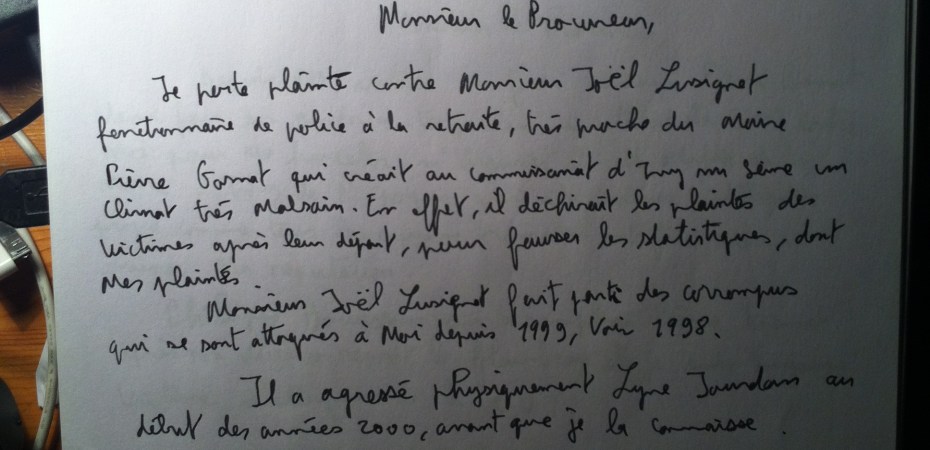 Monsieur le Procureur,
Je porte plainte contre Monsieur Joël Lusignet
fonctionnaire de police à la retraite, très proche du Maire
Pierre Gosnat qui créait au commissariat d'Ivry sur Seine un
climat très malsain. En effet, il déchirait les plaintes des
victimes après leur départ, pour fausser les statistiques, dont
mes plaintes.
Monsieur Joël Lusignet fait partie des corrompus
qui se sont attaqués à moi depuis 1999, voir 1998.
Il a agressé physiquement Lyne Jourdan au
début des années 2000, avant que je la connaisse.